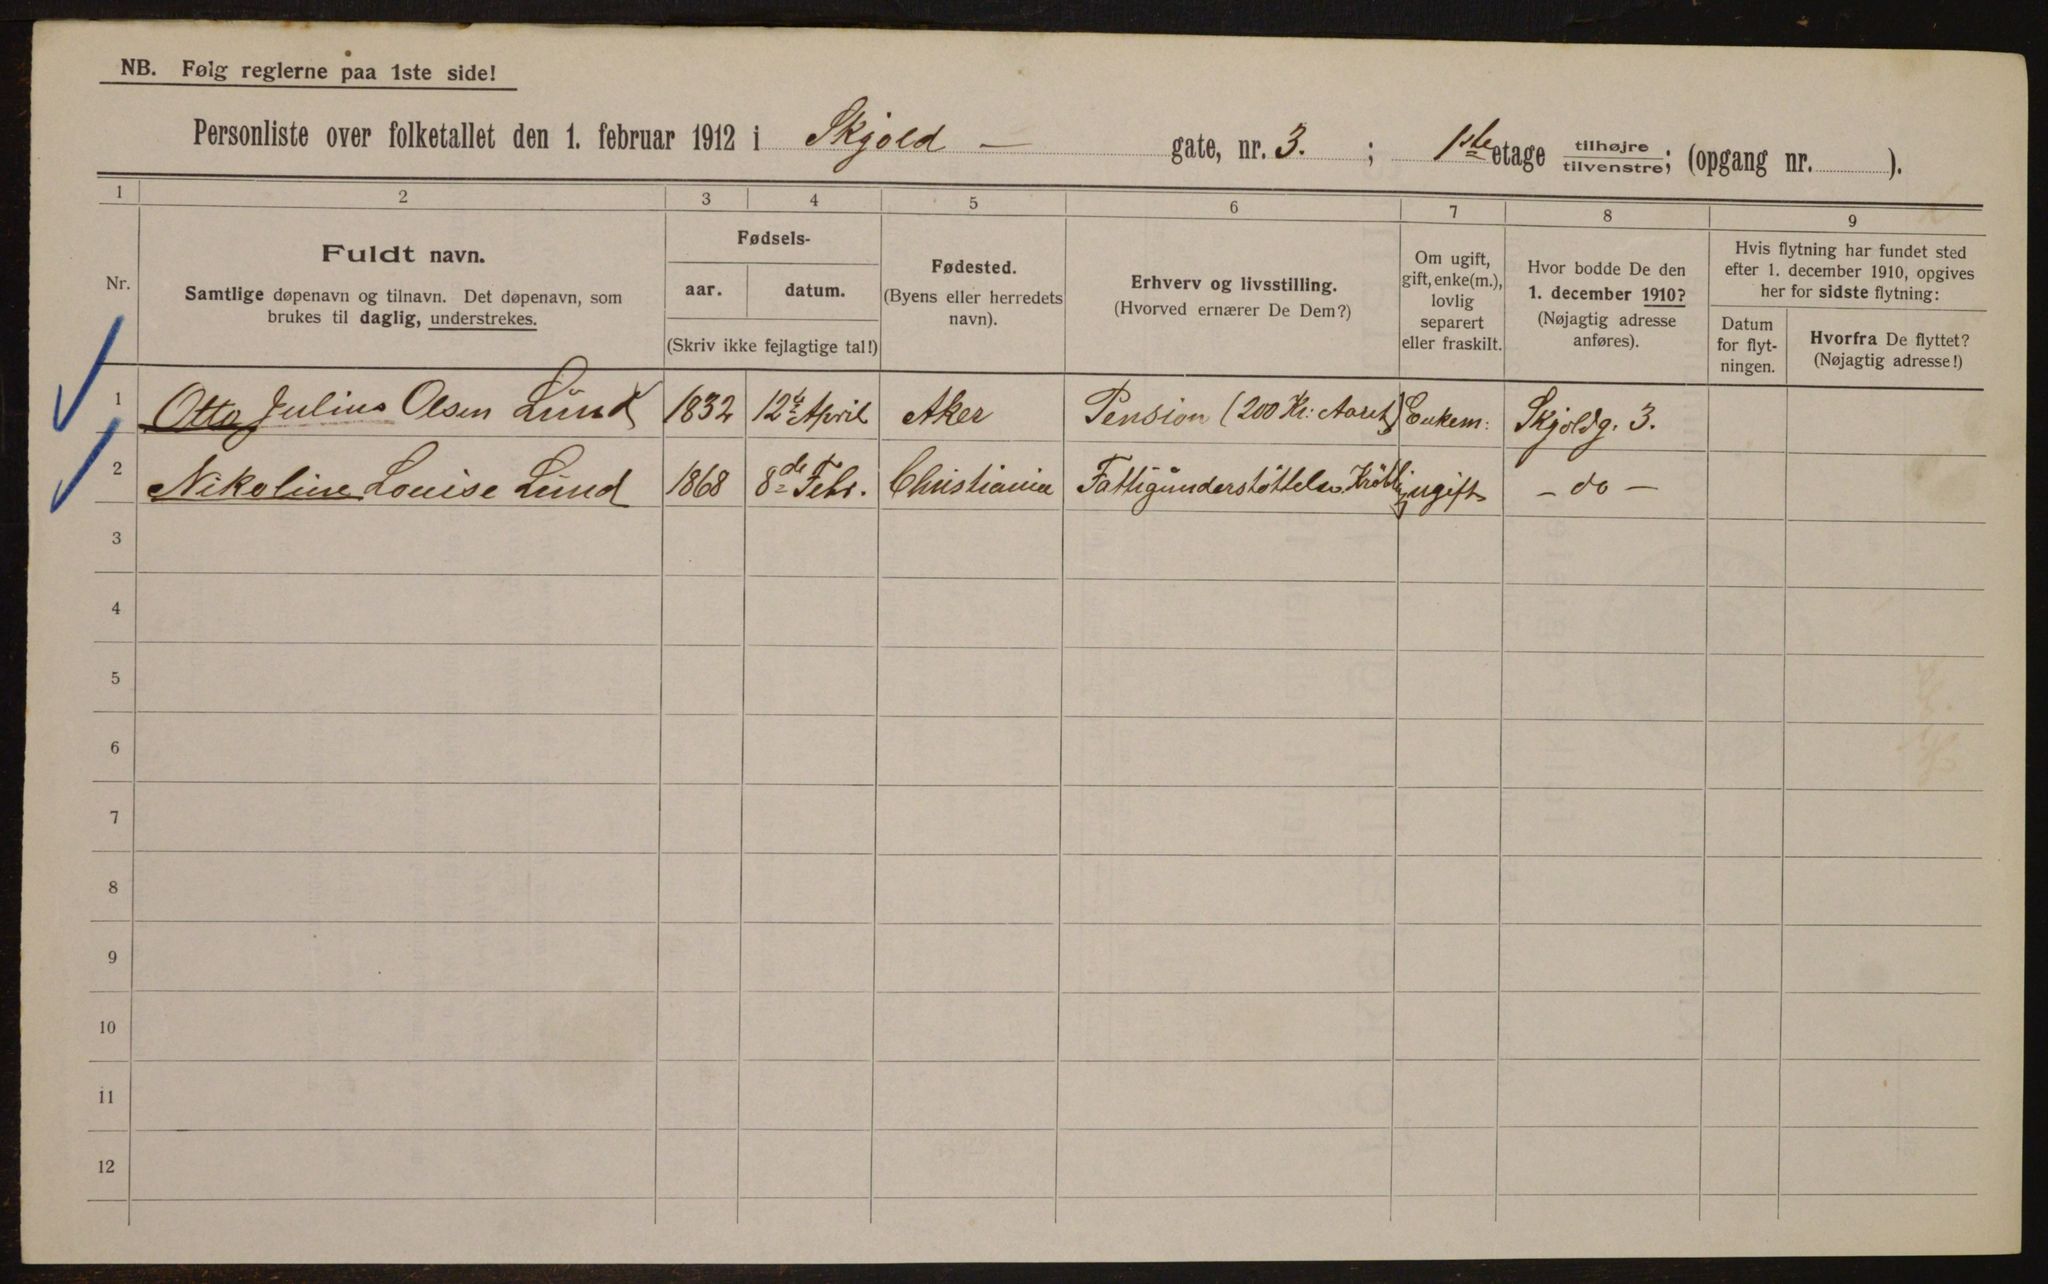 NB. Følg reglerne paa 1ste side!
Personliste over folketallet den 1. februar 1912 i Skjold — gate, nr. 3. ; 1ste etage tilhøjre/tilvenstre; (opgang nr. ).
1 2 3 4 5 6 7 8 9
Nr.
Fuldt navn.
Samtlige døpenavn og tilnavn. Det døpenavn, som
brukes til daglig, understrekes.
Fødsels-
aar. datum.
(Skriv ikke fejlagtige tal!)
Fødested.
(Byens eller herredets
navn).
Erhverv og livsstilling.
(Hvorved ernærer De Dem?)
Om ugift,
gift, enke(m.),
lovlig
separert
eller fraskilt.
Hvor bodde De den
1. december 1910?
(Nøjagtig adresse
anføres).
Hvis flytning har fundet sted
efter 1. december 1910, opgives
her for sidste flytning:
Datum
for flyt-
ningen.
Hvorfra De flyttet?
(Nøjagtig adresse!)
1 Otto Julius Olsen Lund 1832 12te April Aker Pension (200 Kr: Aaret) Enkem: Skjoldg. 3.
2 Nikoline Louise Lund 1868 8de Febr. Christiania Fattigunderstøttelse. Krøbling ugift — do —
3
4
5
6
7
8
9
10
11
12